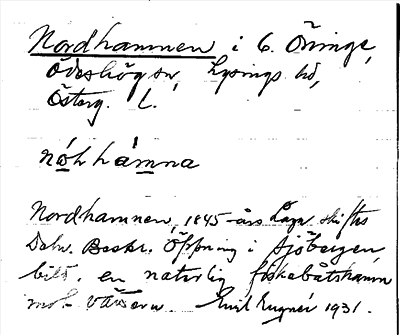 Nordhamnen i G. Öninge,
Ödeshög sn, Lysings hd,
Österg. L.
nóh hàmna
Nordhamnen, 1845-års Laga skiftes
Beskr. Öppning i sjöbergen,
bild. en naturlig fiskebåtshamn
mot Emil Lugnér 1931.